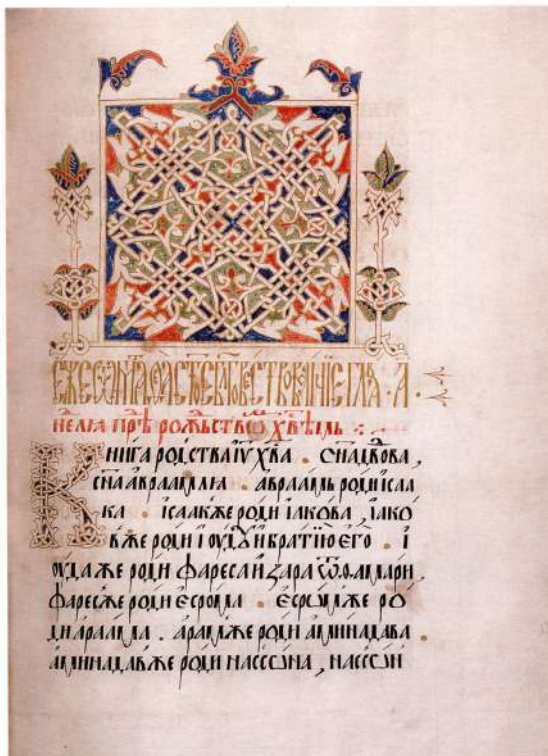 нелїа прѣ рождьствѡⷨ хв҃ѣмь
Книга родства і҃у хв҃а . сн҃а дв҃дова ,
сн҃а авраамлꙗ . авраамь роди ісаа
ка . ісаакже роди іакова , іако
вже роди іоудꙋ и братїю его . і
оудаже роди фареса и зара ѿ ѳамари ,
фаресже роди есрома . есрѡмже ро
ди арама . арамже роди аминадава
аминадавже роди наассѡна , наассѡн